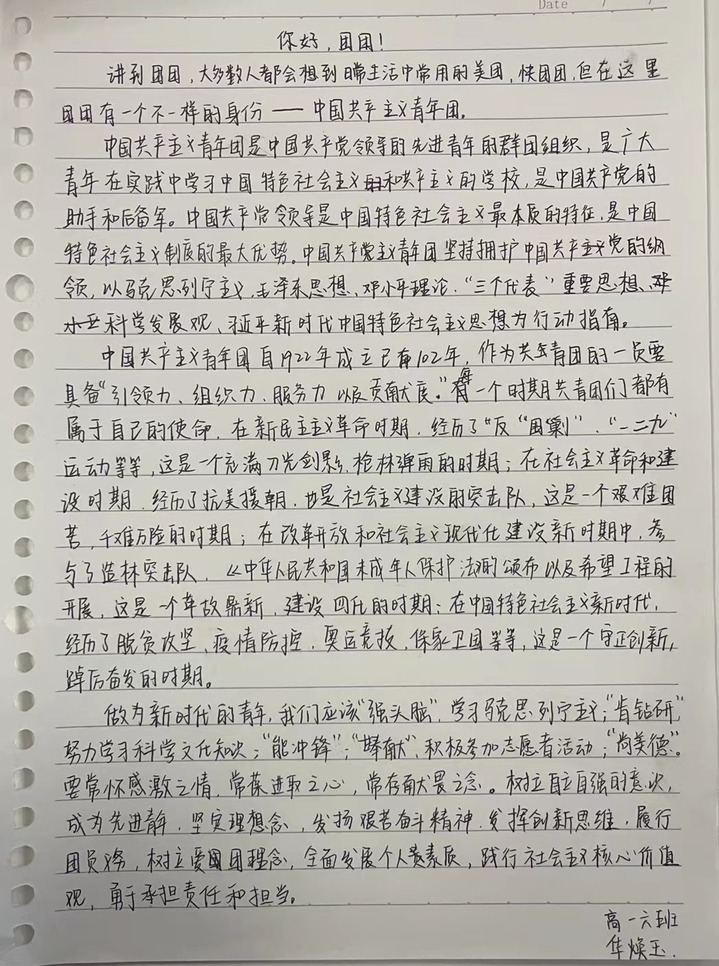 Date / /
你好，团团！
讲到团团，大多数人都会想到日常生活中常用的美团，快团团，但在这里
团团有一个不一样的身份——中国共产主义青年团。
中国共产主义青年团是中国共产党领导的先进青年的群团组织，是广大
青年在实践中学习中国特色社会主义和共产主义的学校，是中国共产党的
助手和后备军。中国共产党领导是中国特色社会主义最本质的特征，是中国
特色社会主义制度的最大优势。中国共产主义青年团坚持拥护中国共产党的纲
领，以马克思列宁主义、毛泽东思想、邓小平理论、“三个代表”重要思想、
科学发展观、习近平新时代中国特色社会主义思想为行动指南。
中国共产主义青年团自1922年成立已有102年，作为共青团的一员要
具备“引领力、组织力、服务力以及贡献度。”每一个时期共青团们都有
属于自己的使命，在新民主主义革命时期，经历了“反“围剿”、“一二九”
运动等等，这是一个充满刀光剑影，枪林弹雨的时期；在社会主义革命和建
设时期，经历了抗美援朝，也是社会主义建设的突击队，这是一个艰难困
苦，千难万险的时期；在改革开放和社会主义现代化建设新时期中，参
与了造林突击队，《中华人民共和国未成年人保护法》的颁布以及希望工程的
开展，这是一个革故鼎新，建设四化的时期；在中国特色社会主义新时代，
经历了脱贫攻坚，疫情防控，奥运竞技，保家卫国等等，这是一个守正创新，
踔厉奋发的时期。
做为新时代的青年，我们应该“强头脑”，学习马克思列宁主义；“肯钻研”，
努力学习科学文化知识；“能冲锋”；“奉献”，积极参加志愿者活动；“尚美德”。
要常怀感激之情，常葆进取之心，常存敬畏之念。树立自立自强的意识，
成为先进青年，坚实理想念，发扬艰苦奋斗精神，发挥创新思维，履行
团员务，树立爱国团理念，全面发展个人素质，践行社会主义核心价值
观，勇于承担责任和担当。
高一六班
华焕玉.